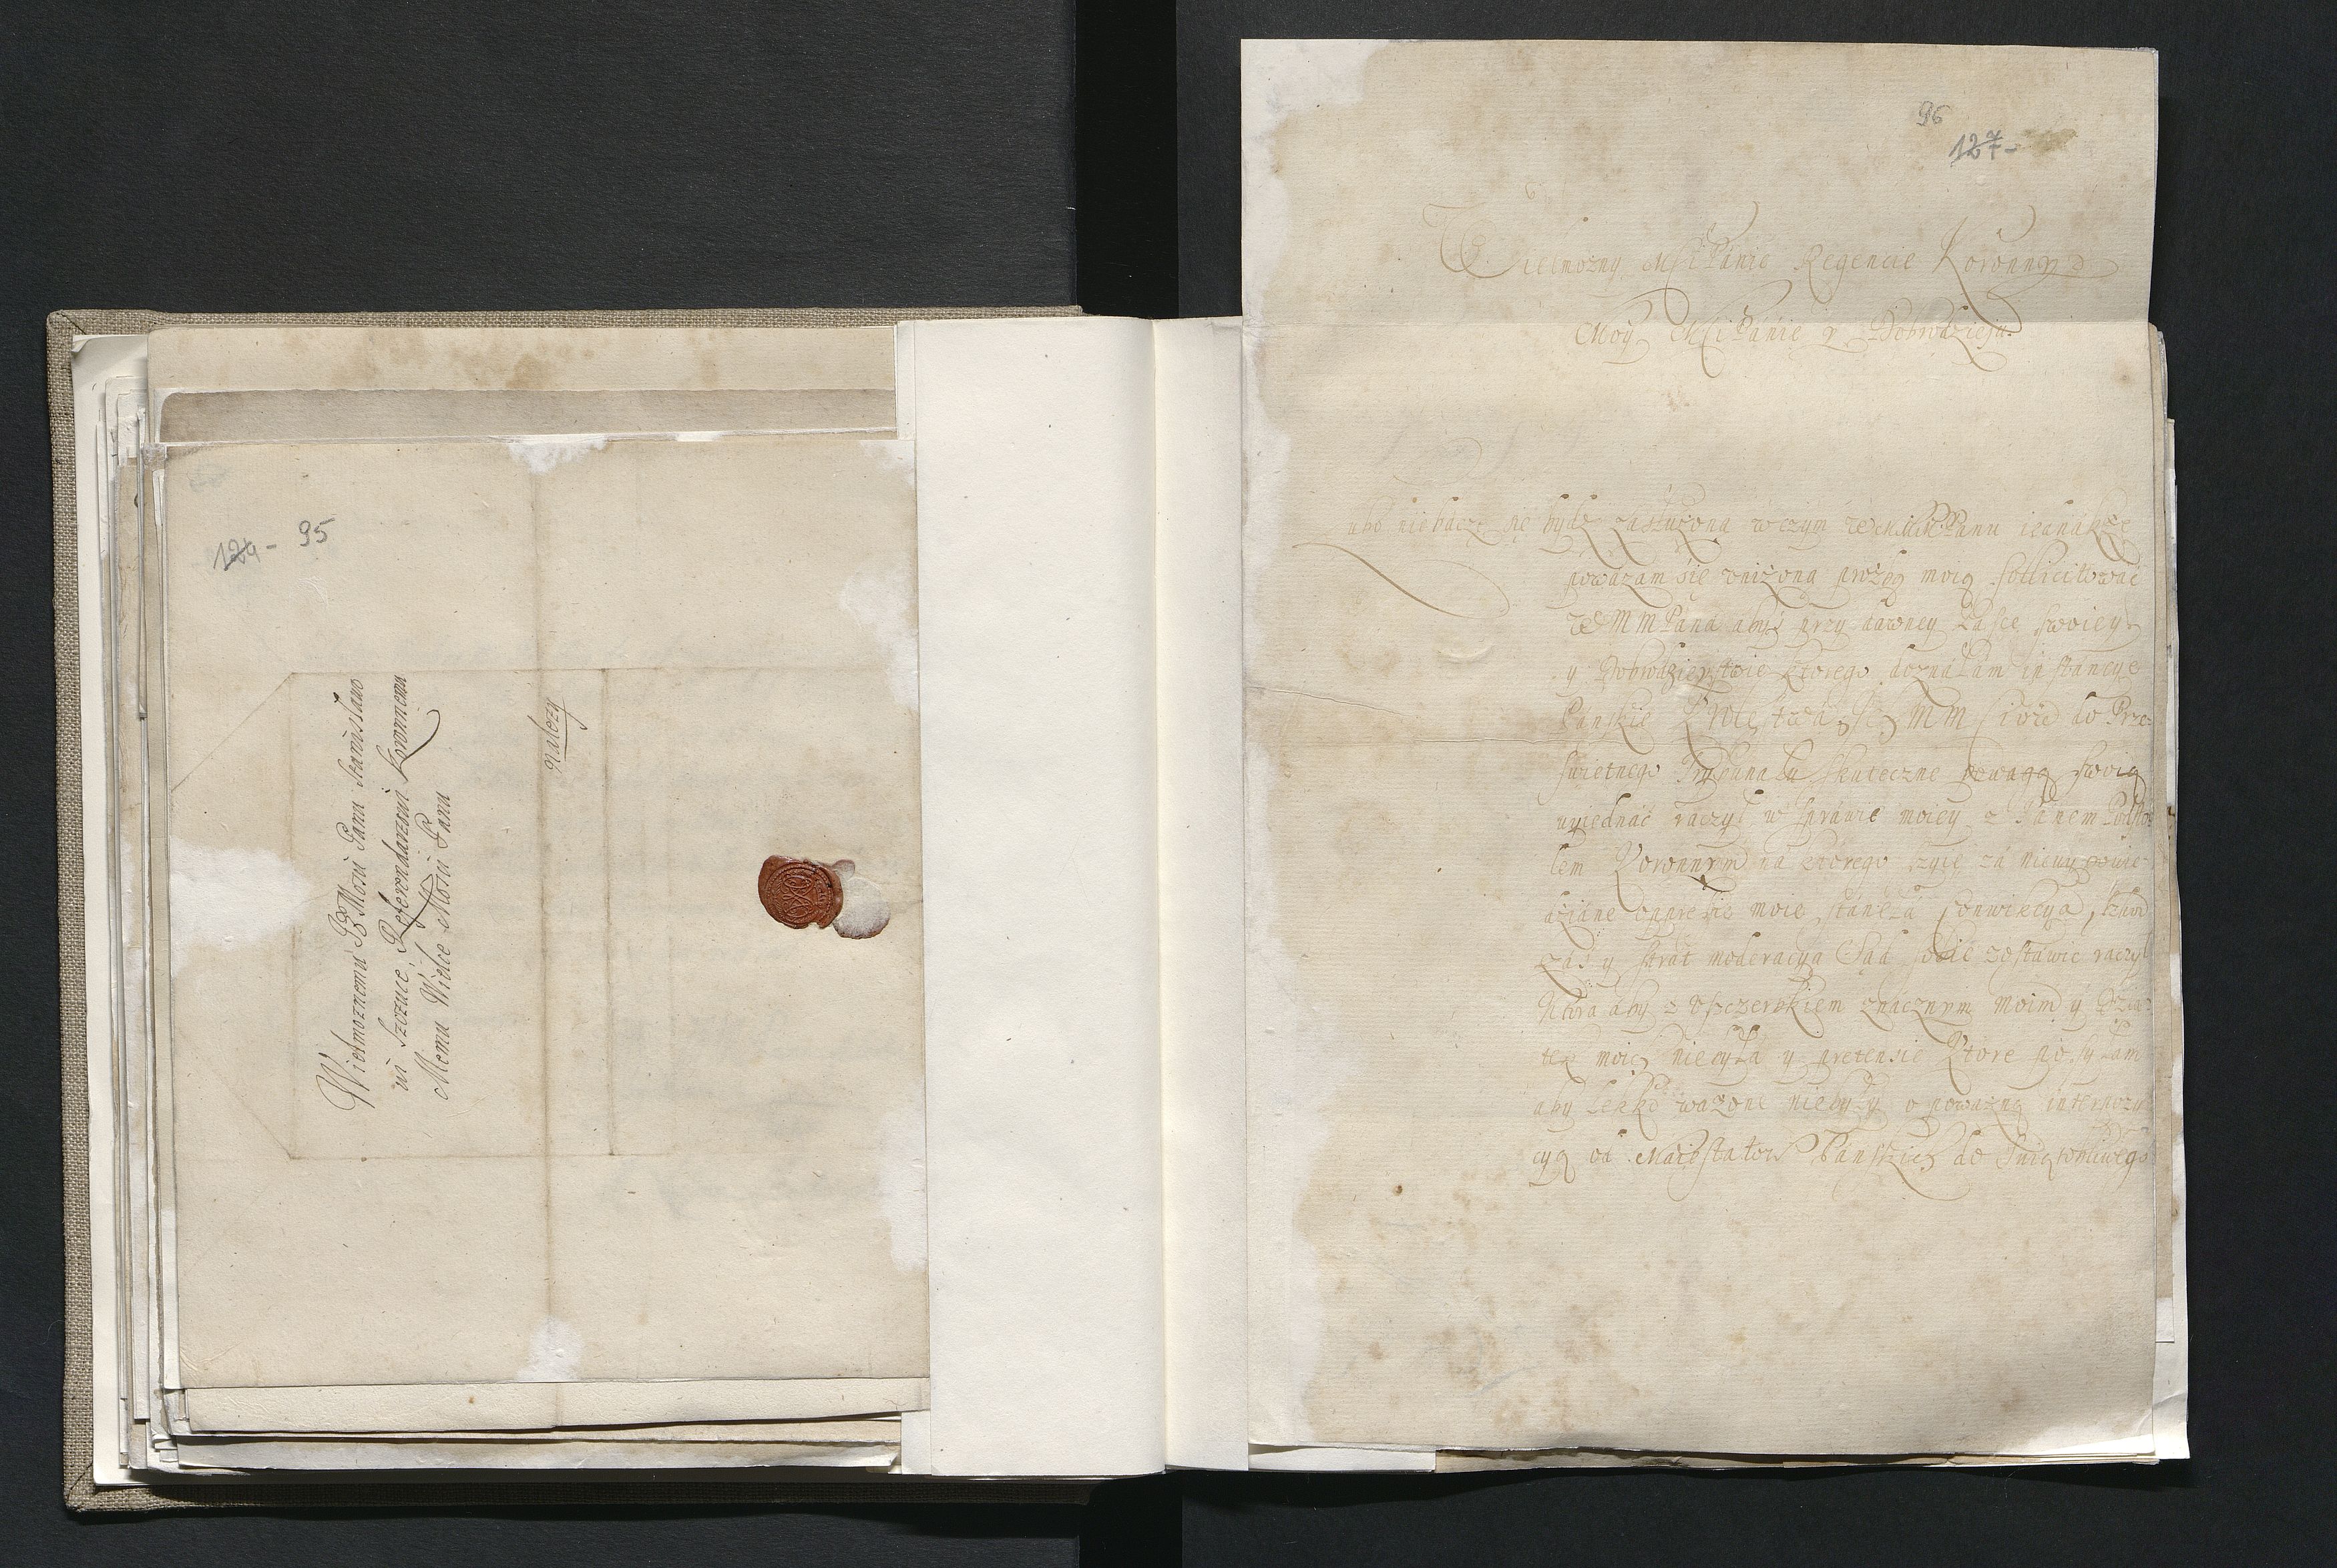 124- 95
Wielmoznemu Moiu Panu Stanislawo
ui Szczuce, Referendarzowi Koronnemu
Memu Wielce Mosciu Panu
należy
96
127-
Wielmozny Mści Panie Regencie Koronny
Moy Mści Panie y Dobrodzieju
Lubo nie bacze się bydź zasłużona w czym WMM Panu iednakże
poważam się uniżoną prożbą moią sollicitować
WMMPana abyś przy dawney Łasce swoiey
y Dobrodzieystwie ktorego doznałam instancye
Panskie Krolestwa Ich MM do Prze-
świetnego Trybunału skuteczne powagą swoią
uiednać raczył w sprawie moiey z Panem Podsto-
lem Koronnym na ktorego za niewypowie-
dziane oppresie moie stanęła conwikcya,
zaś y strat moderacya Sąd sobie zostawić raczył
Ktora aby z Uszczerbkiem znacznym moim y Dzia-
tek moich niebyła y pretensie Ktore posyłam
aby lekko ważone niebyły o poważną interpozy
cyą od Maiestatow Panskich do